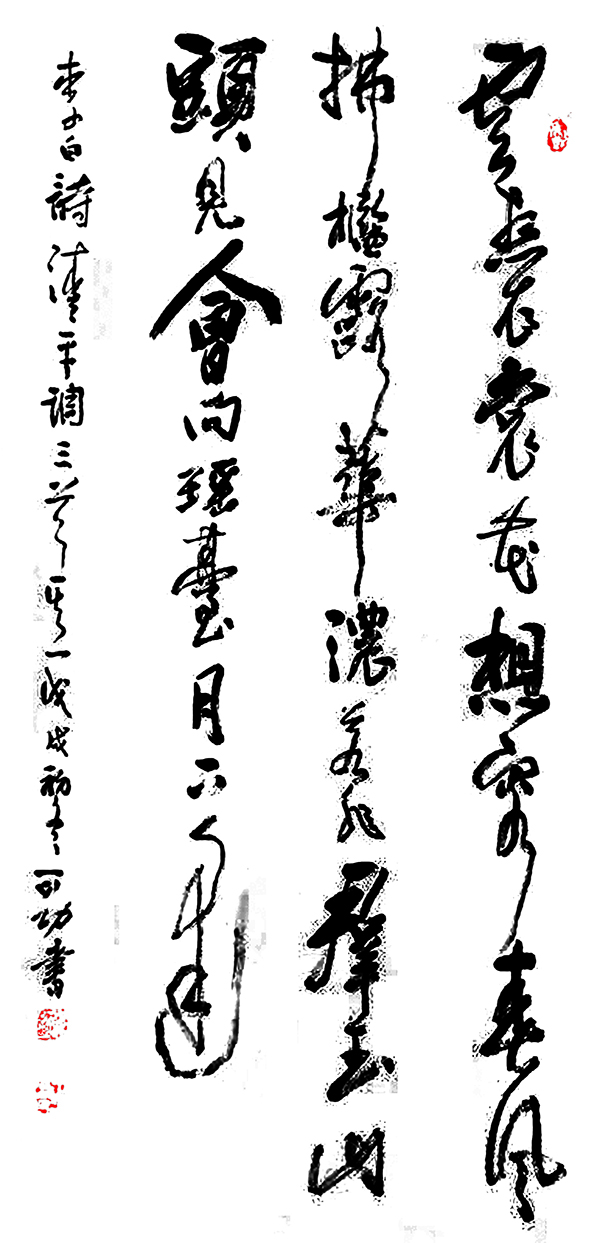 雲想衣裳花想容春風
拂檻露華濃若非羣玉山
頭見會向瑤臺月下逢
李太白詩清平調三首其一戊戌初冬可功書